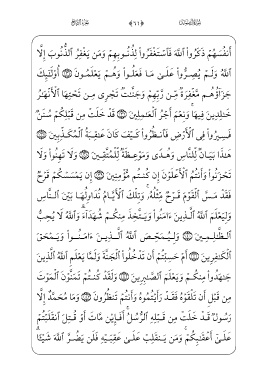 أَنفُسَهُمْ ذَكَرُوا۟ ٱللَّهَ فَٱسْتَغْفَرُوا۟ لِذُنُوبِهِمْ وَمَن يَغْفِرُ ٱلذُّنُوبَ إِلَّا
ٱللَّهُ وَلَمْ يُصِرُّوا۟ عَلَىٰ مَا فَعَلُوا۟ وَهُمْ يَعْلَمُونَ ۝ أُو۟لَـٰٓئِكَ
جَزَآؤُهُم مَّغْفِرَةٌ مِّن رَّبِّهِمْ وَجَنَّـٰتٌ تَجْرِى مِن تَحْتِهَا ٱلْأَنْهَـٰرُ
خَـٰلِدِينَ فِيهَا وَنِعْمَ أَجْرُ ٱلْعَـٰمِلِينَ ۝ قَدْ خَلَتْ مِن قَبْلِكُمْ سُنَنٌ
فَسِيرُوا۟ فِى ٱلْأَرْضِ فَٱنظُرُوا۟ كَيْفَ كَانَ عَـٰقِبَةُ ٱلْمُكَذِّبِينَ ۝
هَـٰذَا بَيَانٌ لِّلنَّاسِ وَهُدًى وَمَوْعِظَةٌ لِّلْمُتَّقِينَ ۝ وَلَا تَهِنُوا۟ وَلَا
تَحْزَنُوا۟ وَأَنتُمُ ٱلْأَعْلَوْنَ إِن كُنتُم مُّؤْمِنِينَ ۝ إِن يَمْسَسْكُمْ قَرْحٌ
فَقَدْ مَسَّ ٱلْقَوْمَ قَرْحٌ مِّثْلُهُۥ وَتِلْكَ ٱلْأَيَّامُ نُدَاوِلُهَا بَيْنَ ٱلنَّاسِ
وَلِيَعْلَمَ ٱللَّهُ ٱلَّذِينَ ءَامَنُوا۟ وَيَتَّخِذَ مِنكُمْ شُهَدَآءَ وَٱللَّهُ لَا يُحِبُّ
ٱلظَّـٰلِمِينَ ۝ وَلِيُمَحِّصَ ٱللَّهُ ٱلَّذِينَ ءَامَنُوا۟ وَيَمْحَقَ
ٱلْكَـٰفِرِينَ ۝ أَمْ حَسِبْتُمْ أَن تَدْخُلُوا۟ ٱلْجَنَّةَ وَلَمَّا يَعْلَمِ ٱللَّهُ ٱلَّذِينَ
جَـٰهَدُوا۟ مِنكُمْ وَيَعْلَمَ ٱلصَّـٰبِرِينَ ۝ وَلَقَدْ كُنتُمْ تَمَنَّوْنَ ٱلْمَوْتَ
مِن قَبْلِ أَن تَلْقَوْهُ فَقَدْ رَأَيْتُمُوهُ وَأَنتُمْ تَنظُرُونَ ۝ وَمَا مُحَمَّدٌ إِلَّا
رَسُولٌ قَدْ خَلَتْ مِن قَبْلِهِ ٱلرُّسُلُ أَفَإِي۟ن مَّاتَ أَوْ قُتِلَ ٱنقَلَبْتُمْ
عَلَىٰٓ أَعْقَـٰبِكُمْ وَمَن يَنقَلِبْ عَلَىٰ عَقِبَيْهِ فَلَن يَضُرَّ ٱللَّهَ شَيْـًٔا